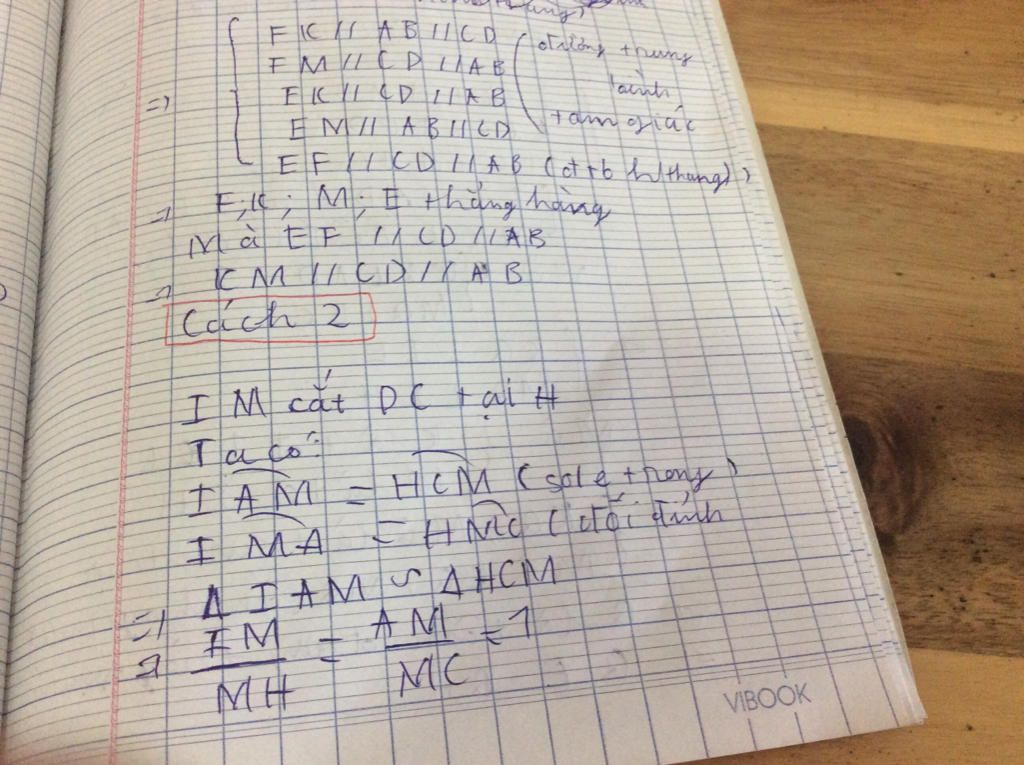 FK // AB // CD
FM // CD // AB
EK // CD // AB
EM // AB // CD
(đường trung
bình
tam giác
=> EF // CD // AB (đtrb h/thang)
=> F; K; M; E thẳng hàng
Mà EF // CD // AB
=> KM // CD // AB
Cách 2
IM cắt DC tại H
Ta có:
IAM = HCM (sole trong)
IMA = HMC (đối đỉnh
=> Δ IAM ∽ Δ HCM
=> IM/MH = AM/MC = 1
VIBOOK